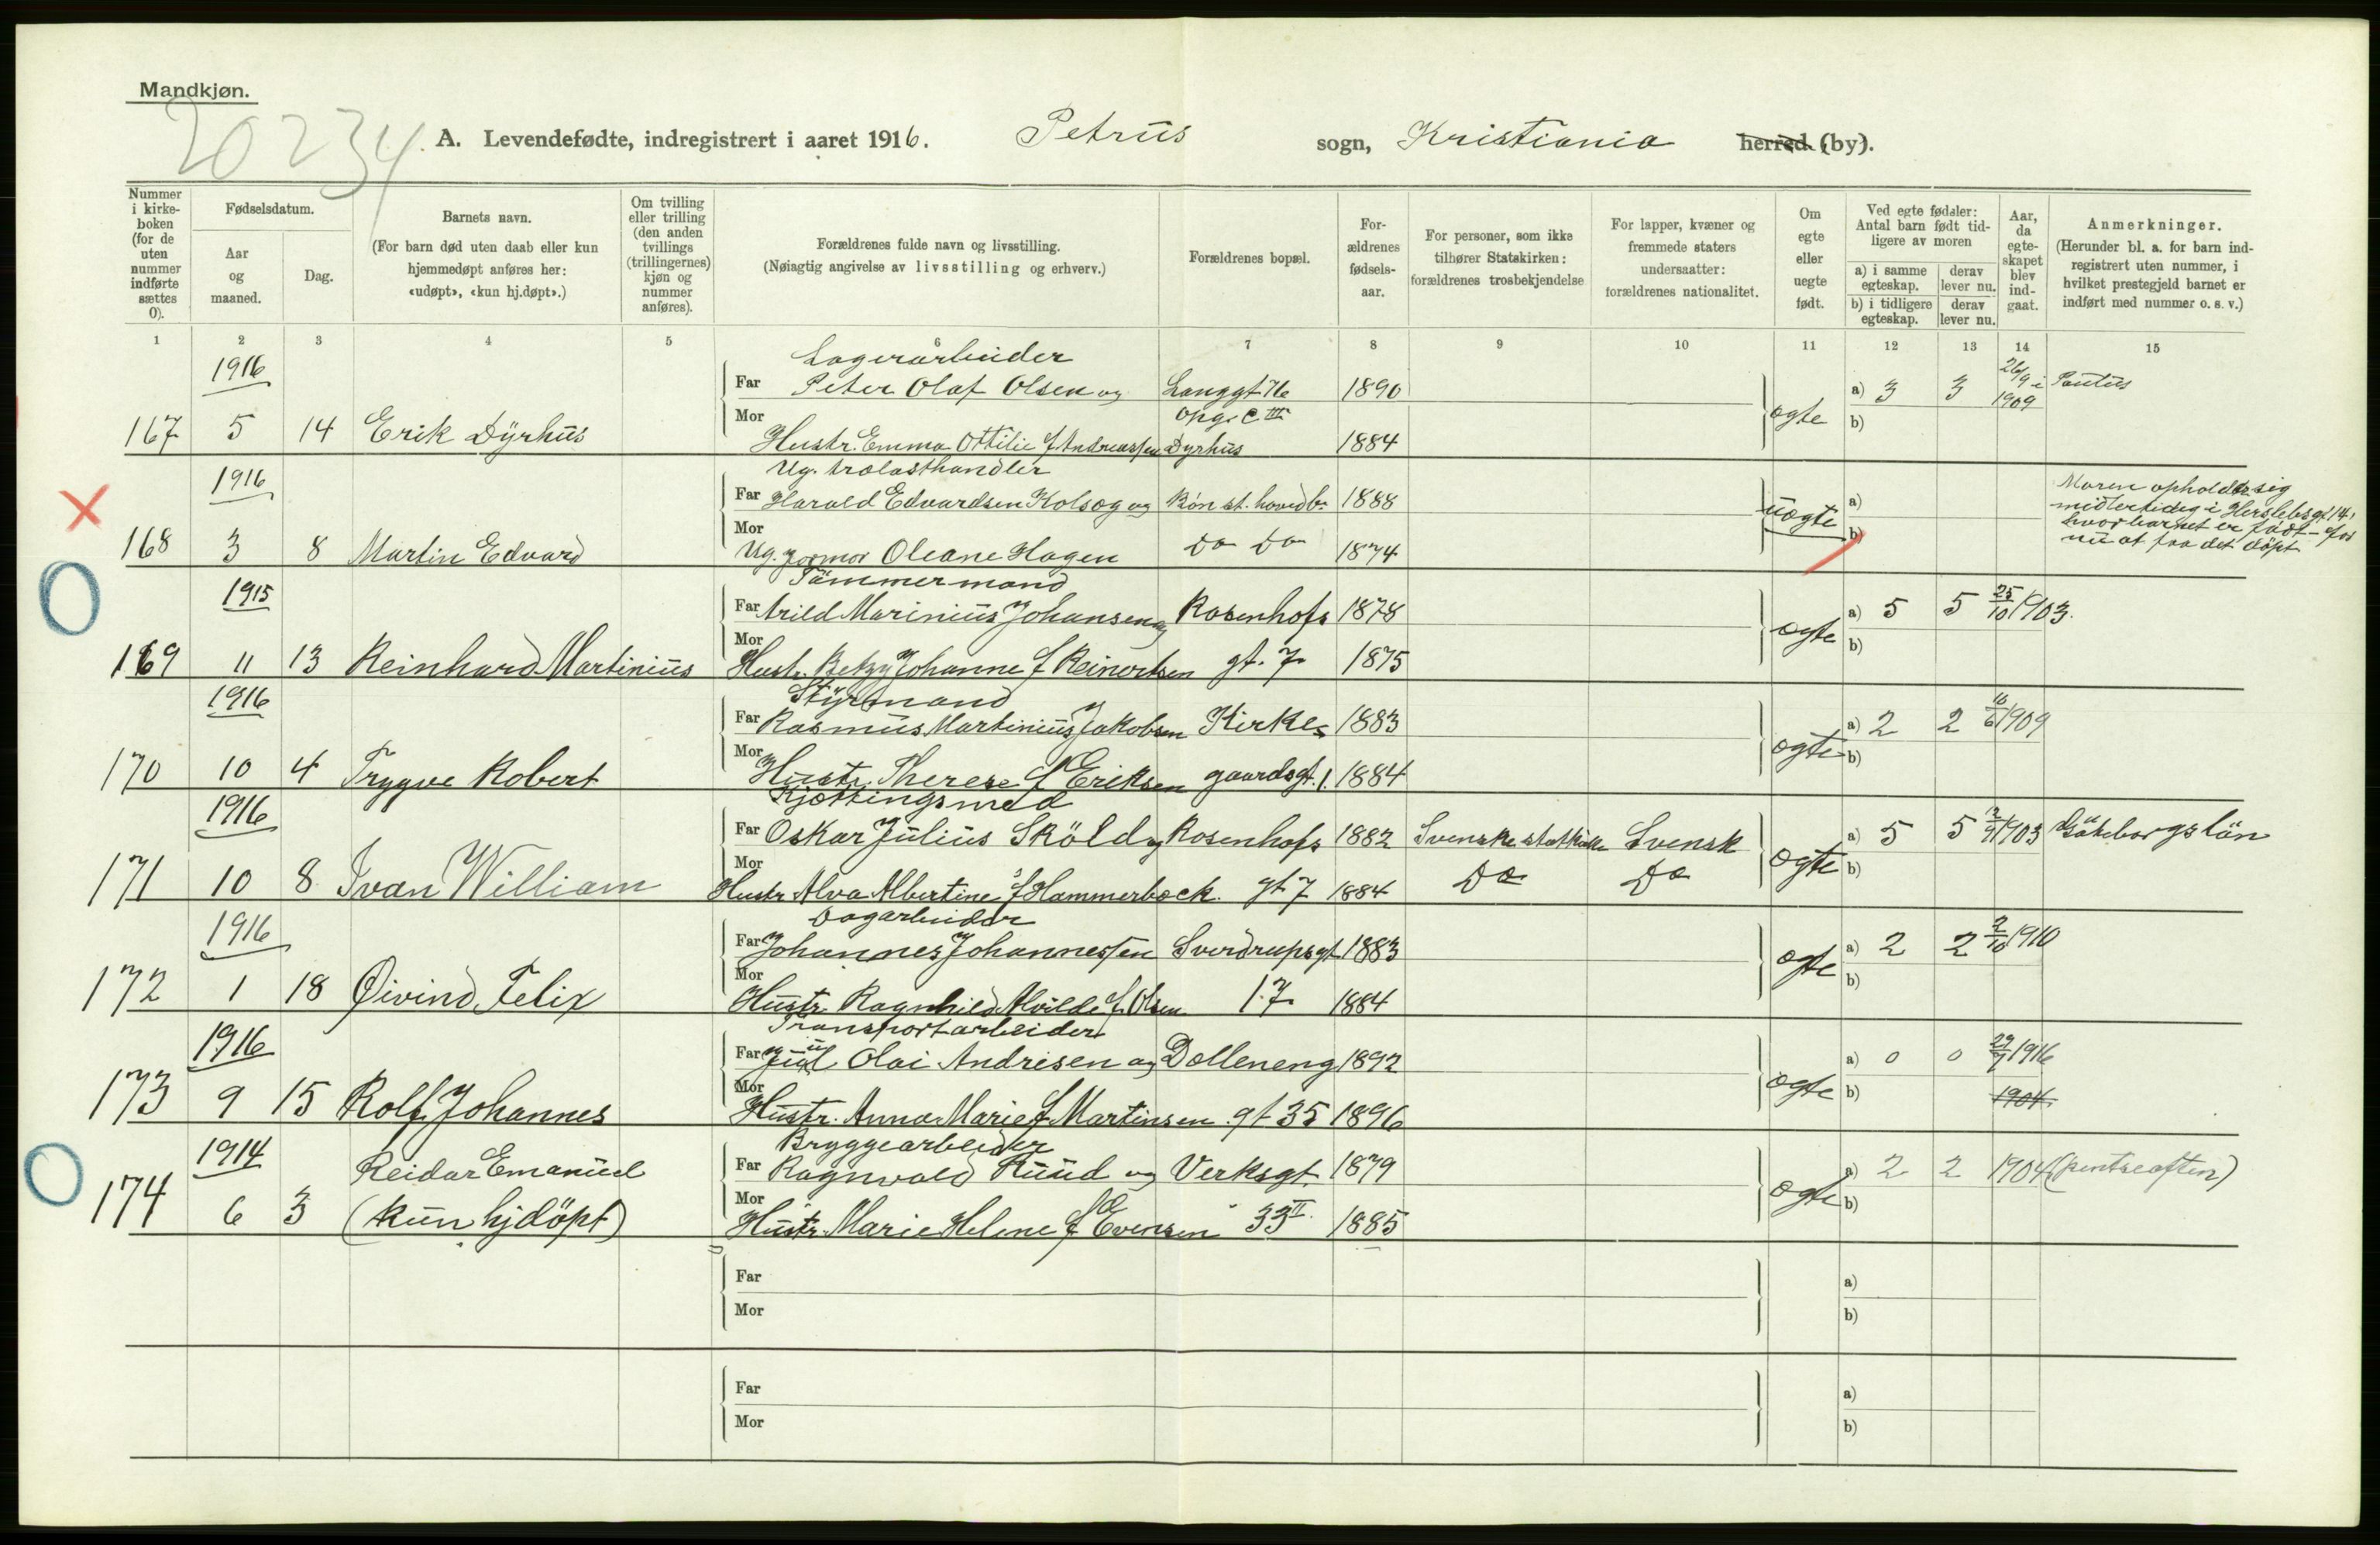 Mandkjøn.
20234
A. Levendefødte, indregistrert i aaret 1916. Petrus sogn, Kristiania herred (by).
Nummer i kirkeboken (for de uten nummer indførte sættes 0).
Fødselsdatum.
Aar og maaned.
Dag.
Barnets navn.
(For barn død uten daab eller kun hjemmedøpt anføres her: «udøpt», «kun hj.døpt».)
Om tvilling eller trilling (den anden tvillings (trillingernes) kjøn og nummer anføres).
Forældrenes fulde navn og livsstilling.
(Nøiagtig angivelse av livsstilling og erhverv.)
Forældrenes bopæl.
Forældrenes fødselsaar.
For personer, som ikke tilhører Statskirken: forældrenes trosbekjendelse
For lapper, kvæner og fremmede staters undersaatter: forældrenes nationalitet.
Om egte eller uegte født.
Ved egte fødsler: Antal barn født tidligere av moren
a) i samme egteskap. derav lever nu.
b) i tidligere egteskap. derav lever nu.
Aar, da egteskapet blev indgaat.
Anmerkninger.
(Herunder bl. a. for barn indregistrert uten nummer, i hvilket prestegjeld barnet er indført med nummer o. s. v.)
1 2 3 4 5 6 7 8 9 10 11 12 13 14 15
1916 Lagerarbeider
Far Peter Olaf Olsen og Langgt 16 1890 a) 3 3 26/9 i 1909 Paulus
167 5 14 Erik Dyrhus Mor opg. C III ægte b)
Hustr. Emma Ottilie f. Andreassen Dyrhus 1884
1916 Ug. trælasthandler
Far Harald Edvardsen Kolsog og Røn st. hovedb. 1888 uægte a) Moren opholder sig
midlertidig i Herslebsgt 14,
hvor barnet er født
nu at faa det døpt
168 3 8 Martin Edvard Mor Ug. Jormor Oleane Hagen Do Do 1874 b)
1915 Tømmermand
Far Arild Marinius Johansen og Rosenhofs 1878 ægte a) 5 5 25/10 1903.
169 11 13 Reinhard Martinius Mor Hustr. Betzy Johanne f Reinertsen gt. 7 1875 b)
1916 Styrmand
Far Rasmus Martinius Jakobsen Kirke- 1883 ægte a) 2 2 1909
170 10 4 Trygve Robert Mor Hustr. Therese f Eriksen gaardsgt. 1. 1884 b)
1916 Kjættingsmed
Far Oskar Julius Sköld og Rosenhofs 1882 Svenske statskirke Svensk ægte a) 5 5 1903 Göteborgs län
171 10 8 Ivan William Mor Hustr Alva Albertine f Hammerbäck. gt 7 1884 Do Do b)
1916 Dagarbeider
Far Johannes Johannessen Sverdrupsgt 1883 ægte a) 2 2 2/10 1910
172 1 18 Øivind Felix Mor Hustr Ragnhild Alvilde f. Olsen 17 1884 b)
1916 Transportarbeider
Far Jul Olai Andrisen og Dælleneng 1892 ægte a) 0 0 1916
173 9 15 Rolf Johannes Mor Hustr. Anna Marie f Martinsen gt 35 1896 b) 1904
1914 Bryggearbeider
Reidar Emanuel Far Ragnvald Ruud og Verksgt. 1879 ægte a) 2 2 1904 (pintseaften)
174 6 3 (kun hjdöpt) Mor Hustr. Marie Helene f Evensen 33 II. 1885 b)
Far a)
Mor b)
Far a)
Mor b)